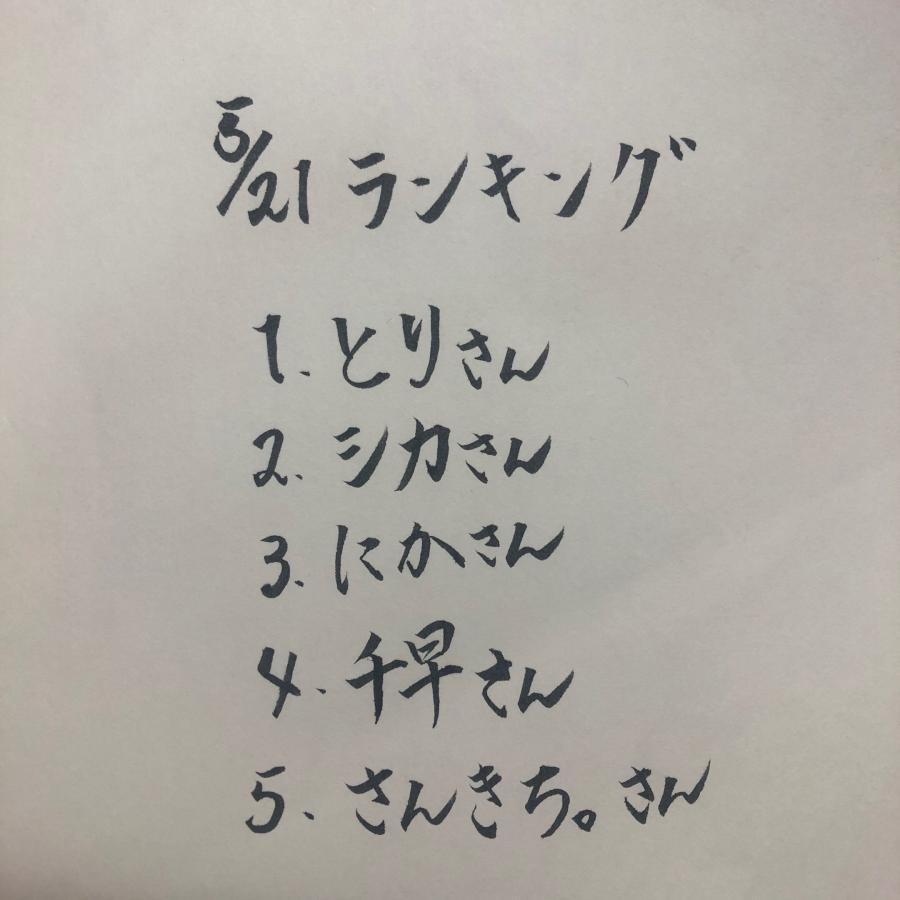 5/21 ランキング
1. とりさん
2. シカさん
3. にかさん
4. 千早さん
5. さんきち。さん